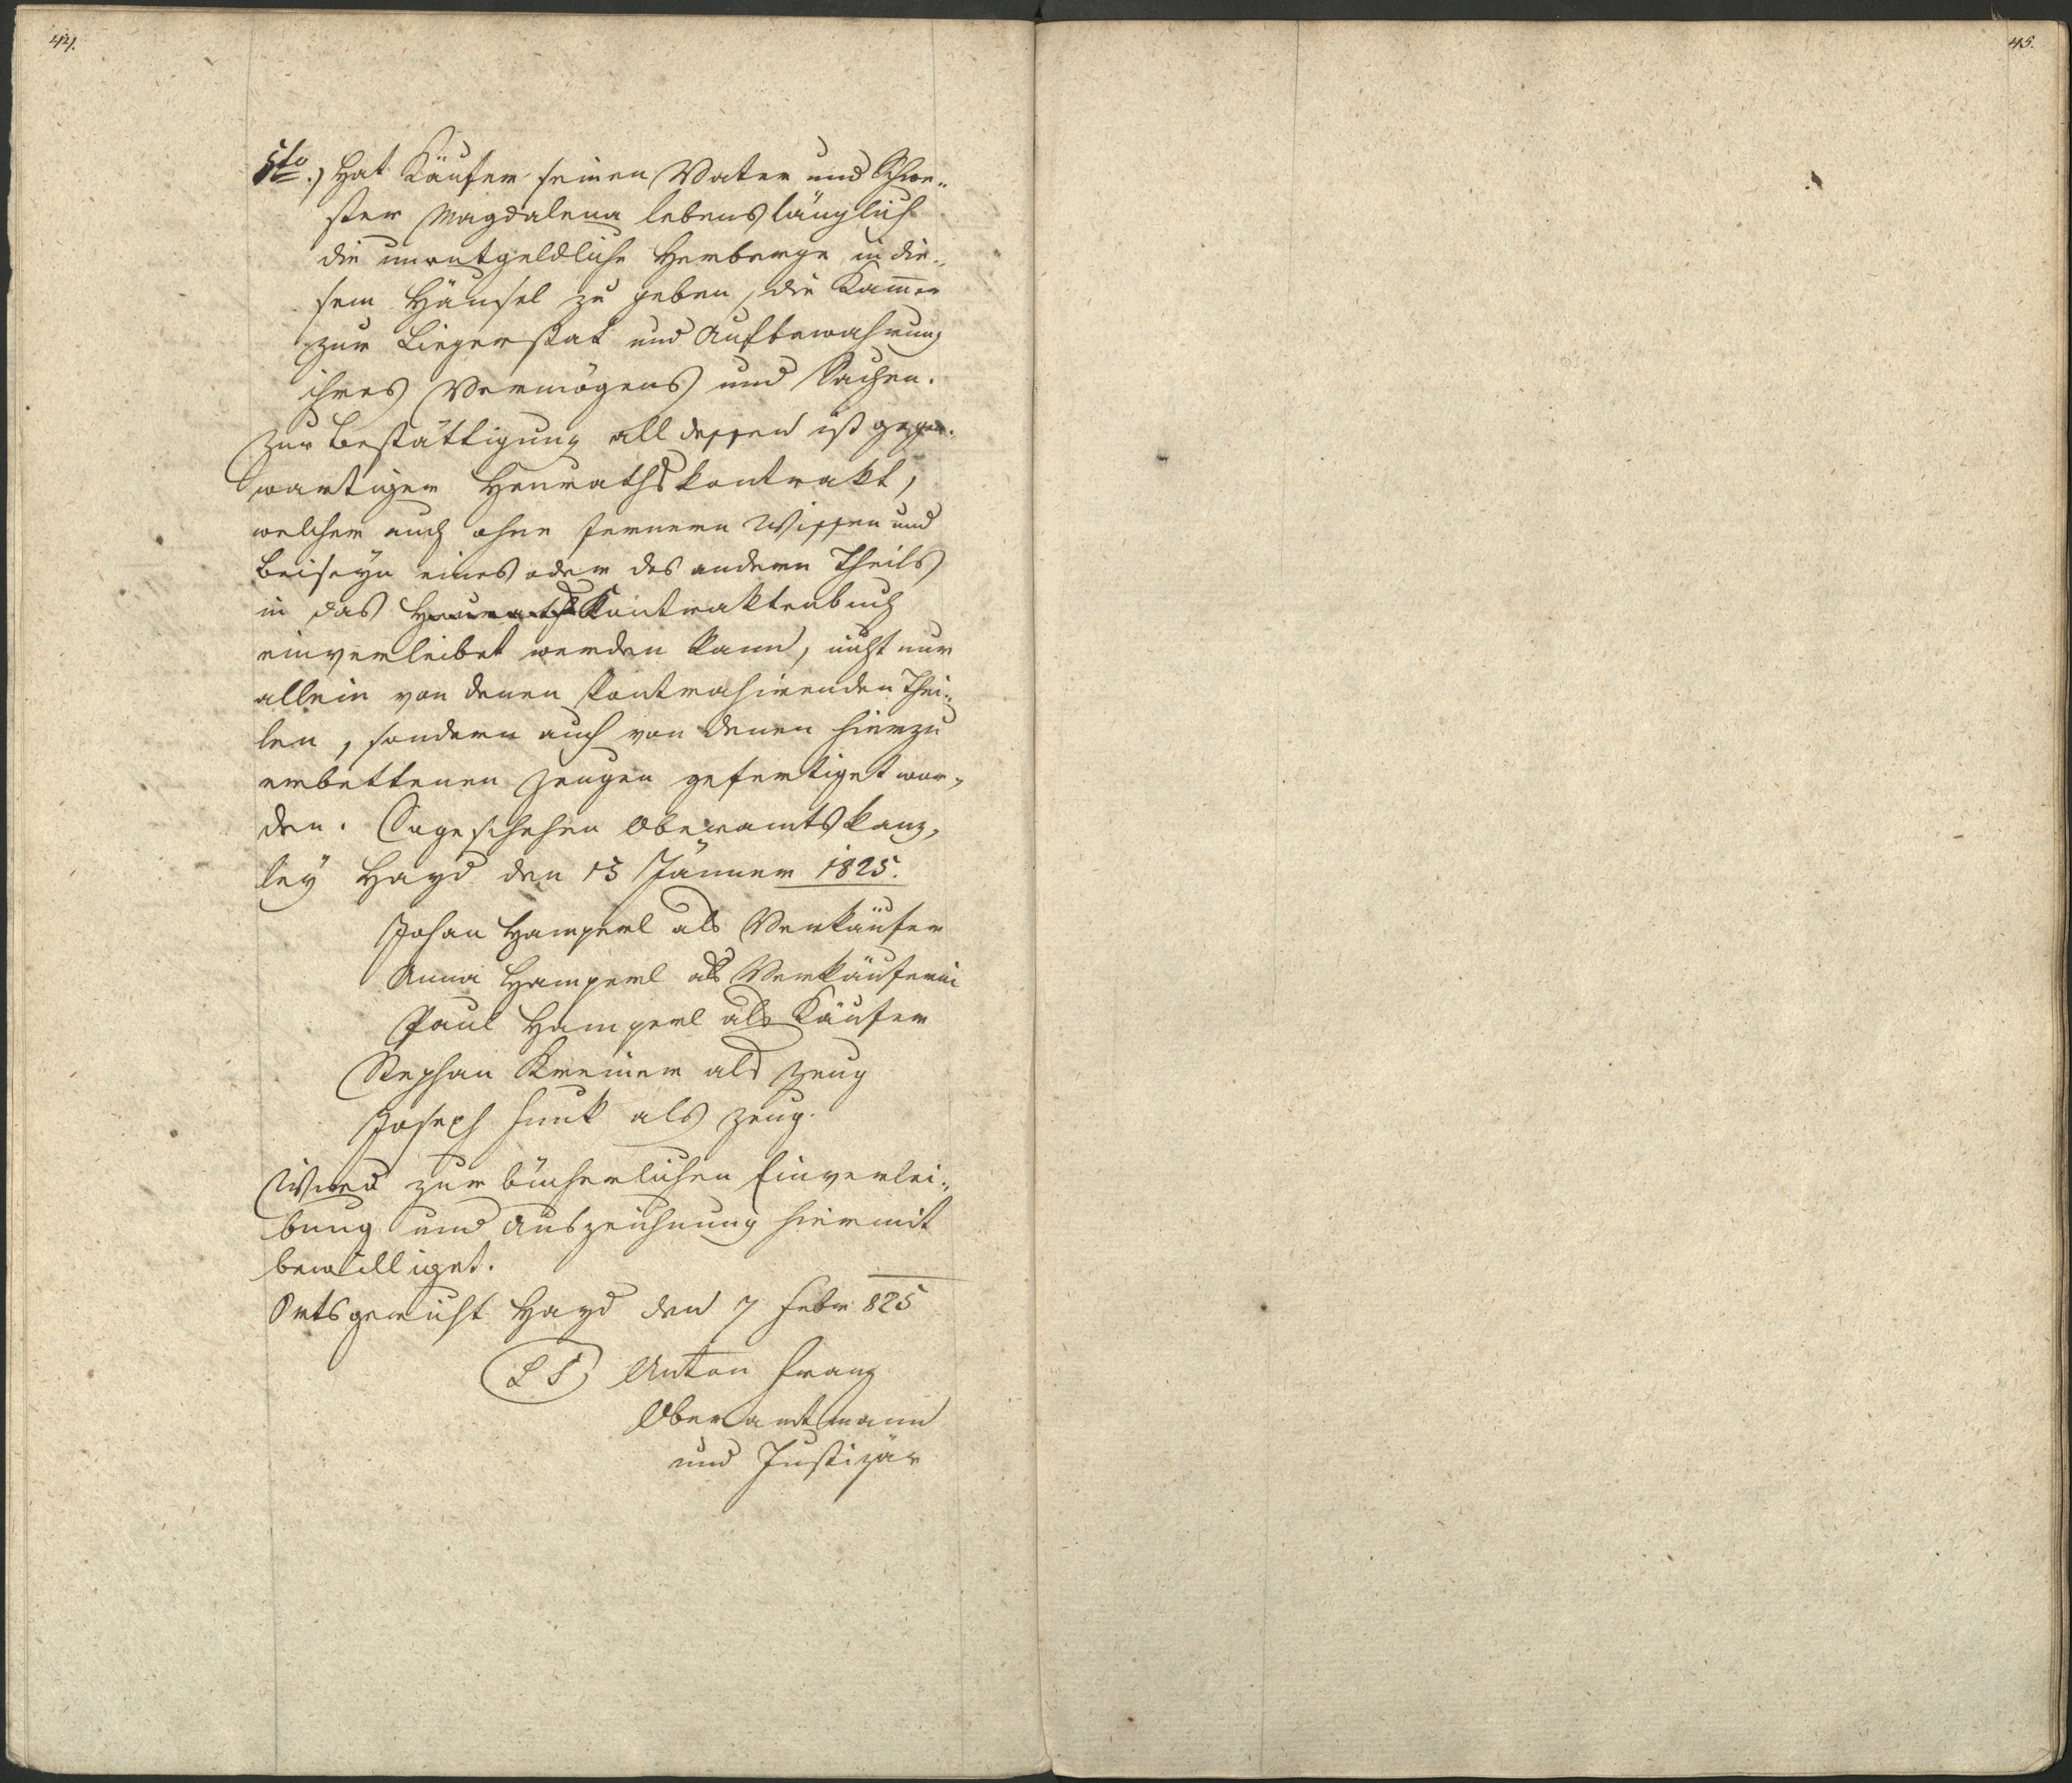 44.
5to.) Hat Käufer seinen Vater und Schwe„
ster Magdalena lebenslänglich
die unentgeldliche Herberge in die„
sem Häusel zu geben, die Kam̅er
zur Liegerstat und Aufbewahrung
ihres Vermögens und Sachen.
Zur Bestättigung all dessen ist gegen„
wartiger Heurathskontrakt,
welcher auch ohne fernern Wissen und
Beiseyn eines oder des andern Theils
in das Heuraths Kontraktenbuch
einverleibet werden kann, nicht nur
allein von denen Contrahirenden Thei„
len, sondern auch von denen hierzu
erbettenen Zeugen gefertiget wor„
den. So geschehen Oberamtskanz„
ley Hayd den 13 Jänner 1825.
Johan Hamperl als Verkäufer
Anna Hamperl als Verkäuferin
Paul Hamperl als Käufer
Stephan Kreiner als Zeug
Joseph Funk als Zeug.
Wird zur bücherlichen Einverlei„
bung und Auszeichnung hiermit
bewilliget.
Ortsgericht Hayd den 7 Febr 825
LS Anton Franz
Oberamtmann
und Justizär
45.